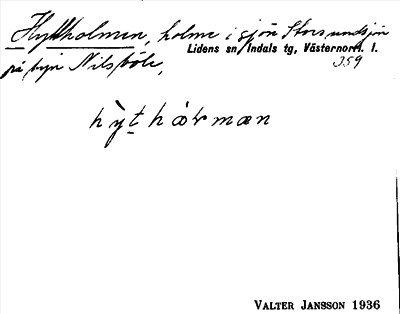 Hyttholmen, holme i sjön Storsundsjön
Lidens sn, Indals tg, Västernorrl. l.
på byn Nilsböle,
359
hy̱thåɽmæn
VALTER JANSSON 1936